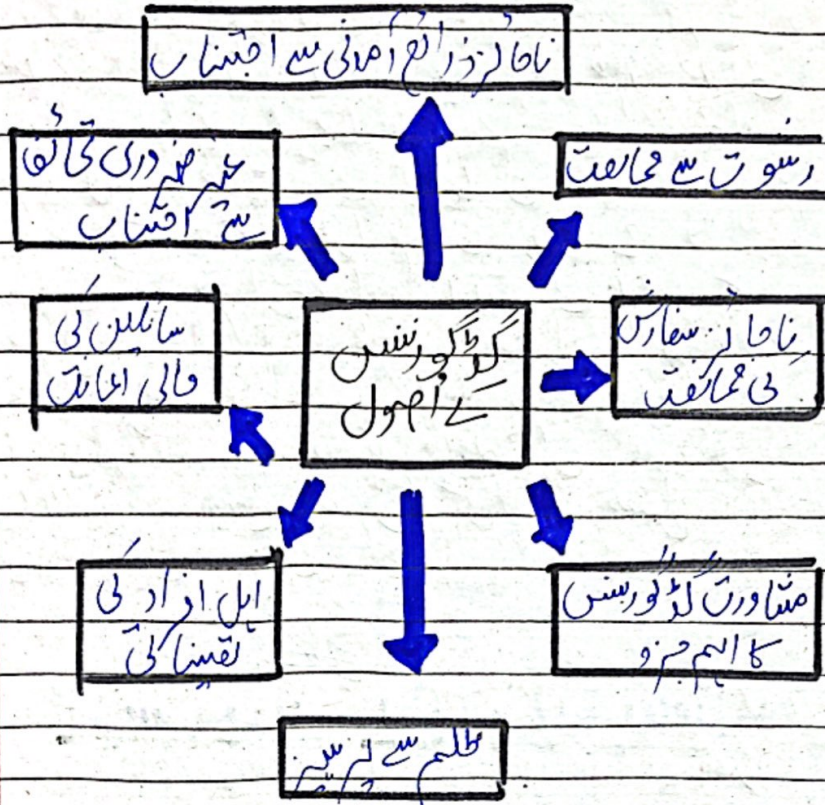 ناجائز ذرائع آمدنی سے اجتناب
غیر ضروری تحائف
سے اجتناب
رشوت سے ممانعت
سائلین کی
مالی اعانت
گڈ گورننس
کے اصول
ناجائز سفارش
کی ممانعت
اہل افراد کی
تعیناتی
مشاورت گڈ گورننس
کا اہم جزو
ظلم سے پرہیز